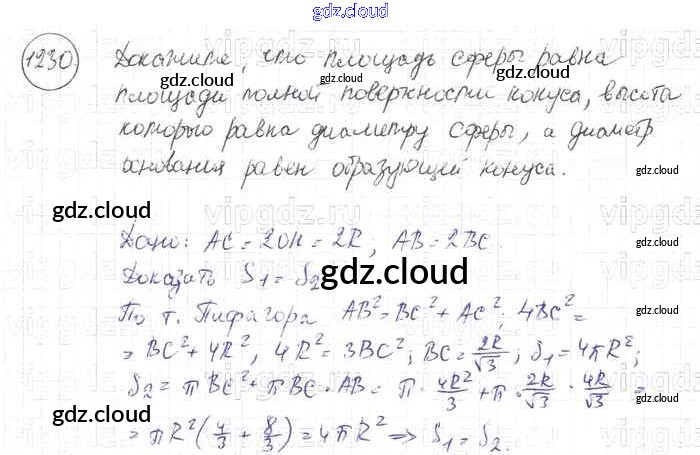 gdz.cloud
1230. Докажите, что площадь сферы равна
площади полной поверхности конуса, высота
которого равна диаметру сферы, а диаметр
основания равен образующей конуса.
gdz.cloud
gdz.cloud
gdz.cloud
gdz.cloud
gdz.cloud
gdz.cloud
Дано: AC = 2OH = 2R, AB = 2BC.
Доказать S₁ = S₂
gdz.cloud
По т. Пифагора AB² = BC² + AC²; 4BC² =
= BC² + 4R², 4R² = 3BC²; BC = 2R/√3; S₁ = 4πR²;
gdz.cloud
gdz.cloud
S₂ = πBC² + πBC · AB = π · 4R²/3 + π · 2R/√3 · 4R/√3 =
gdz.cloud
gdz.cloud
= πR²(4/3 + 8/3) = 4πR² ⇒ S₁ = S₂.